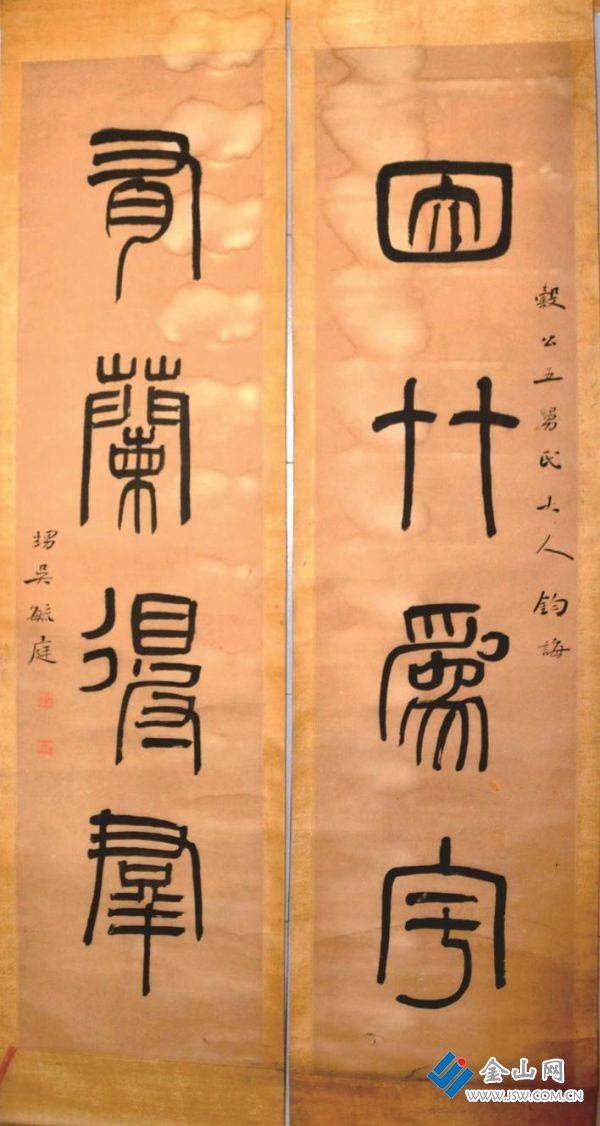 穀公五舅氏大人鈞誨
因竹為宇
有蘭得羣
甥吳毓庭
金山网
WWW.JSW.COM.CN